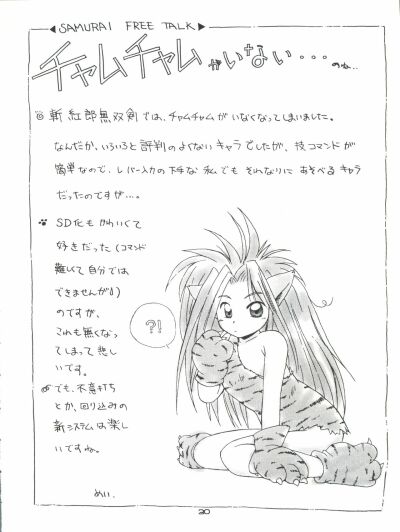 SAMURAI FREE TALK
チャムチャムがいない・・・のね…
斬紅郎無双剣では、チャムチャムがいなくなってしまいました。
なんだか、いろいろと評判のよくないキャラでしたが、技コマンドが
簡単なので、レバー入力の下手な私でもそれなりにあそべるキャラ
だったのですが…。
SD化もかわいくて
好きだった(コマンド
難しくて自分では
できませんが)
のですが、
これも無くなっ
てしまって悲し
いです。
でも、不意打ち
とか、回り込みの
新システムは楽し
いですね。
?!
めい.
20